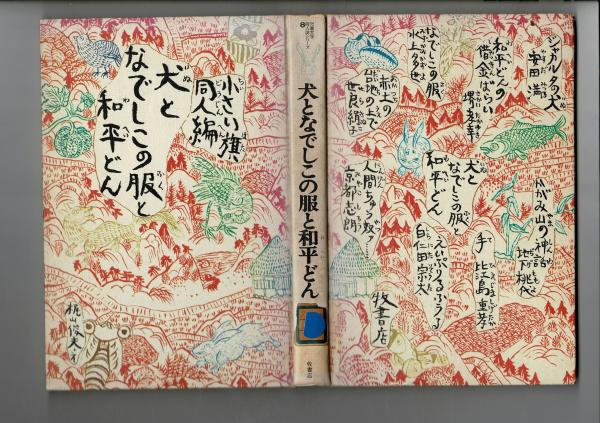 犬と
なでしこの服と
和平どん
小さい旗
同人編
犬となでしこの服と和平どん
牧書店
ジャガルタの犬
平田 満
和平どんの
借金ばらい
堺 孝幸
なでしこの服
水上多世
赤土の
台地の上で
世良絹子
犬と
なでしこの服と
和平どん
人間ちゅう奴ァ…
京都志朗
かがみ山の神話
手
比江島重孝
えいぷりるふうる
白仁田宗太
牧書店